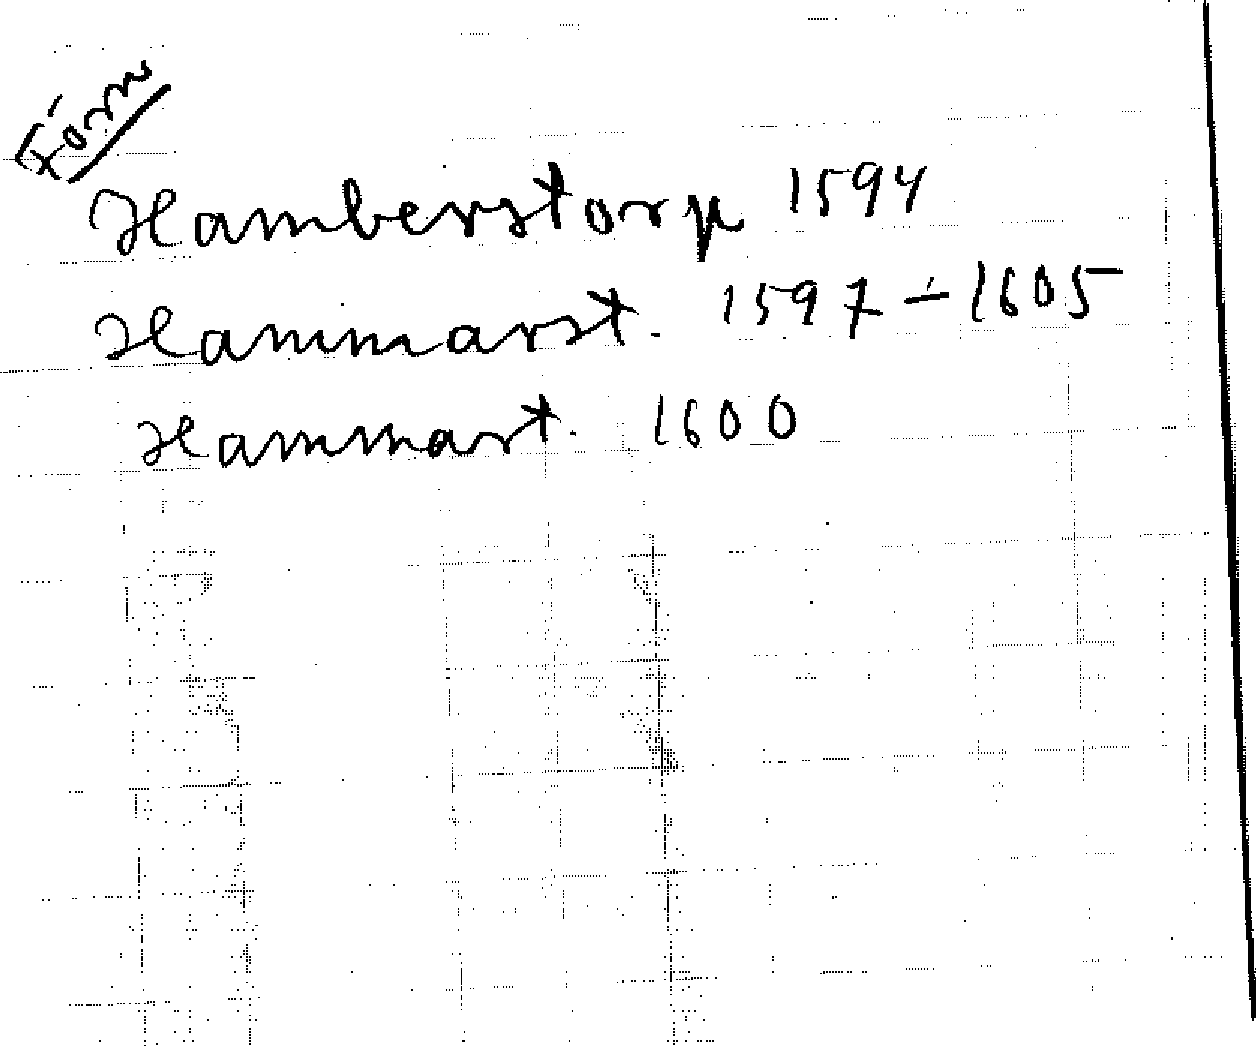 Form
Hamberstorp 1594
Hammarst. 1597–1605
Hammart. 1600